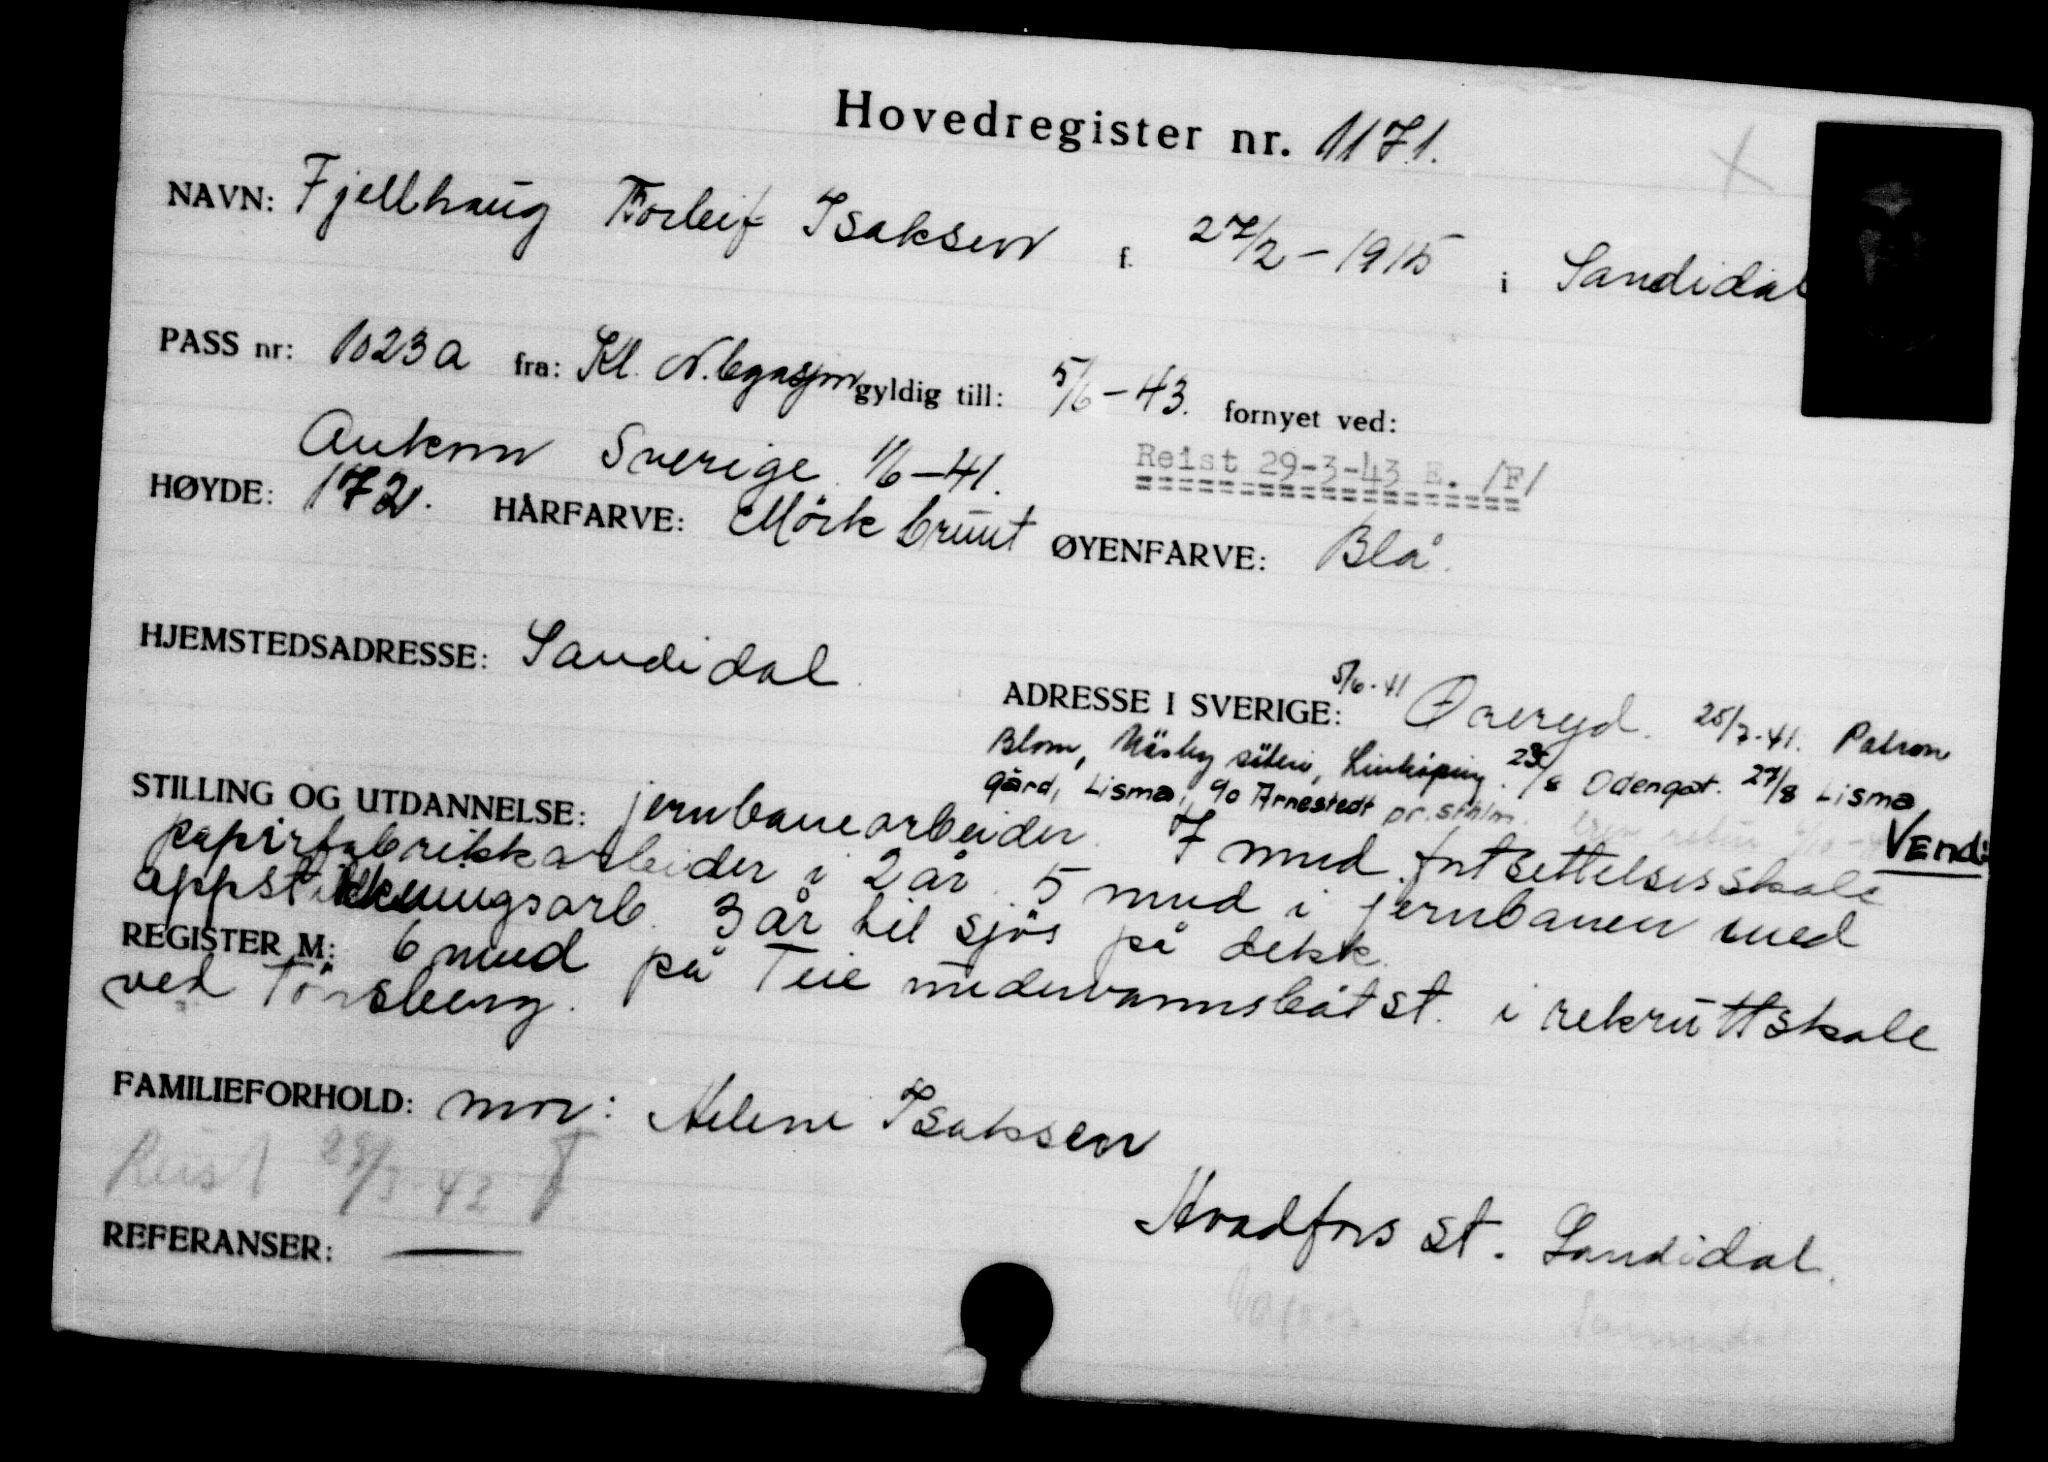 Hovedregister nr. 1171.
NAVN: Fjellhaug Torleif Isaksen f. 27/2 - 1915 i Sandidal
PASS nr: 1023a fra: Kl. N. legasjon gyldig till: 5/6 - 43. fornyet ved:
Ankom Sverige 1/6 - 41.
Reist 29-3-43 E. /F/
HØYDE: 172. HÅRFARVE: Mörk brunt ØYENFARVE: Blå.
HJEMSTEDSADRESSE: Sandidal
ADRESSE I SVERIGE: 5/6-41 Öreryd. 25/7-41. Patron
Blom, Näsby säteri, Linköping. /8 Odengat. 27/8 Lisma
gård, Lisma, c/o Arnestedt pr. Sthlm.
Vend:
STILLING OG UTDANNELSE: jernbanearbeider 7 mnd. fortsettelsesskole
papirfabrikkarbeider i 2 år. 5 mnd i jernbanen med
oppstikkningsarb. 3 år til sjös på dekk.
REGISTER M: 6 mnd på Teie undervannsbåtst. i rekruttskole
ved Tönsberg.
FAMILIEFORHOLD: mor: Helene Isaksen
Reist 29/3-43 F
Hvadfos st. Sandidal.
REFERANSER: —